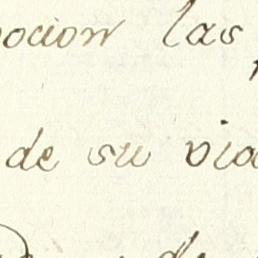 ocion las
de su via